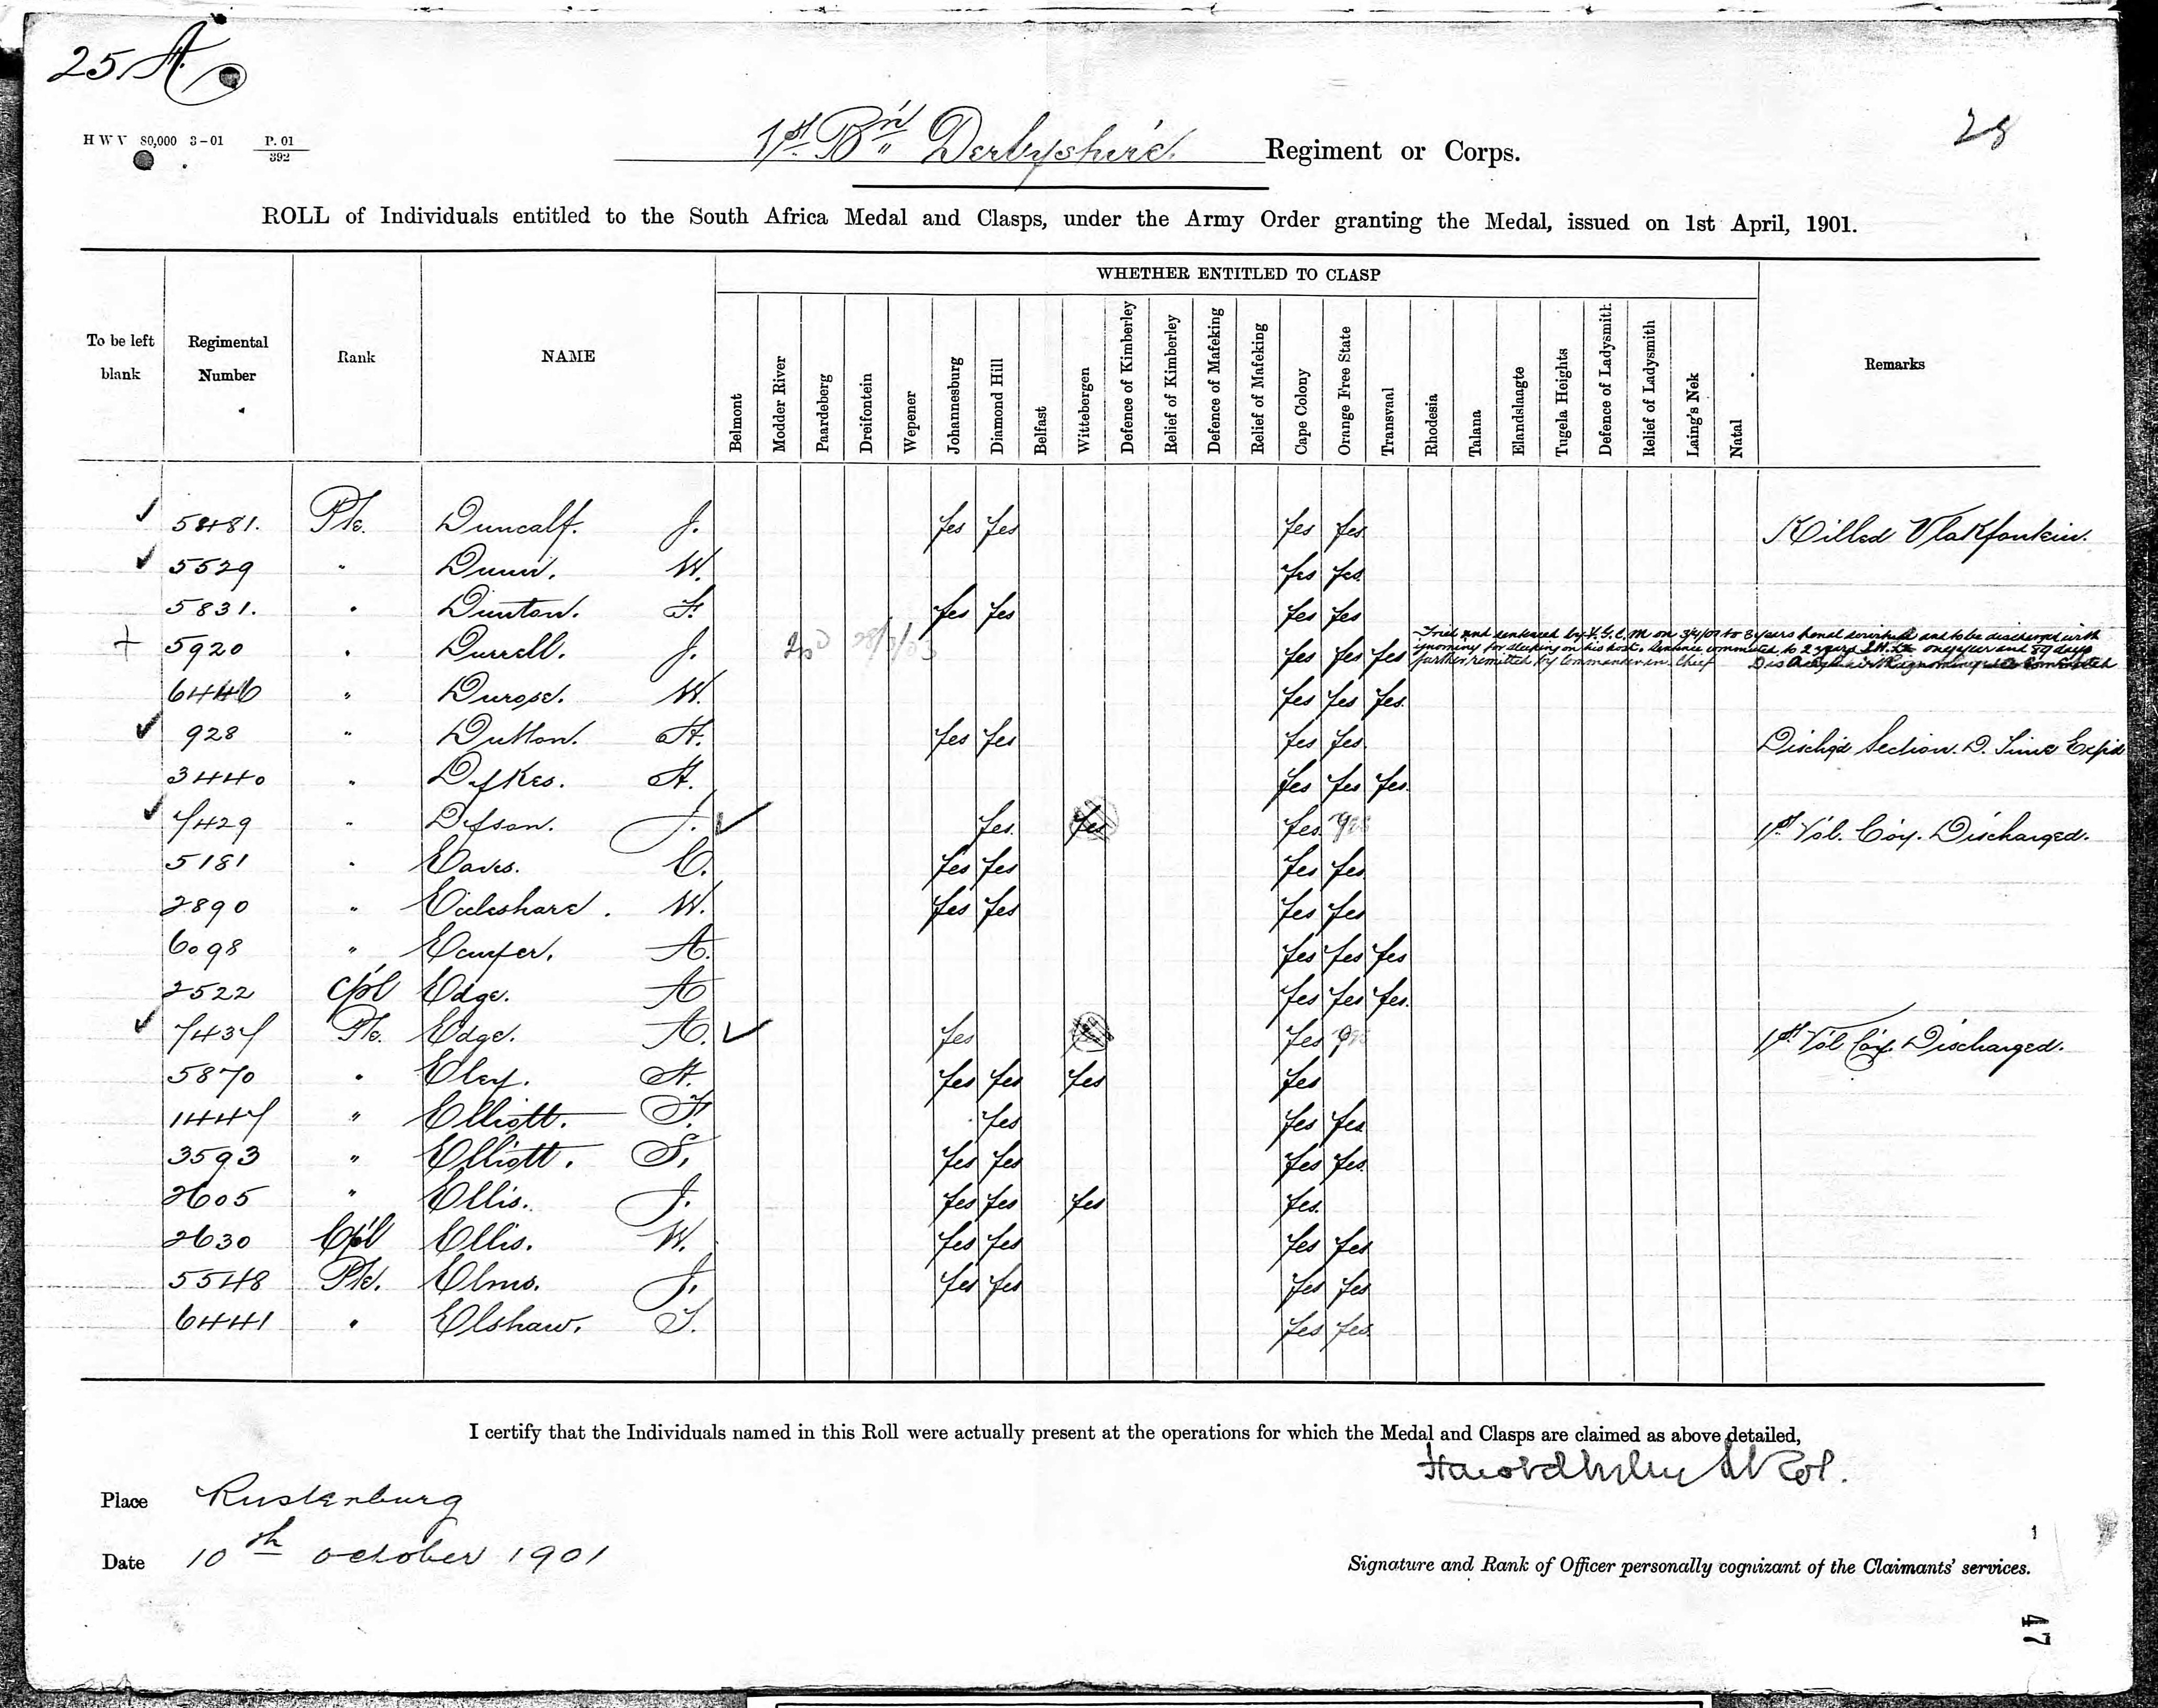 25 A.
28
H W V 80,000 3–01 P. 01
392
1st Bn Derbyshire Regiment or Corps.
ROLL of Individuals entitled to the South Africa Medal and Clasps, under the Army Order granting the Medal, issued on 1st April, 1901.
To be left blank Regimental Number Rank NAME WHETHER ENTITLED TO CLASP Remarks
Belmont Modder River Paardeberg Dreifontein Wepener Johannesburg Diamond Hill Belfast Wittebergen Defence of Kimberley Relief of Kimberley Defence of Mafeking Relief of Mafeking Cape Colony Orange Free State Transvaal Rhodesia Talana Elandslaagte Tugela Heights Defence of Ladysmith Relief of Ladysmith Laing's Nek Natal
✓ 5481. Pte. Duncalf. J. Yes Yes Yes Yes Killed Vlakfontein.
✓ 5529 " Dunn. W. Yes Yes
5831. " Dunton. F. Yes Yes Yes Yes
+ 5920 " Durrell. J. Yes Yes Yes
Tried and sentenced by F.G.C.M on 3/4/01 to 3 years penal servitude and to be discharged with
ignominy for sleeping on his post. Sentence commuted to 2 years I.H.L. one year and 89 days
further remitted by Commander in Chief
6446 " Durose. W. Yes Yes Yes.
✓ 928 " Dutton. H. Yes Yes Yes Yes. Dischgd Section. D. Time Expd
3440 " Dykes. H. Yes Yes Yes.
✓ 7429 " Dyson. J. ✓ Yes. Yes Yes. 1st Vol. Coy. Discharged.
5181 " Eaves. C. Yes Yes Yes Yes
2890 " Eccleshare. W. Yes Yes Yes Yes
6098 " A. Yes Yes Yes
2522 Cpl Edge. A Yes Yes Yes.
✓ 7437 Pte. Edge. A. ✓ Yes Yes 1st Vol Coy. Discharged.
5870 " Eley. H. Yes Yes Yes Yes
1447 " Elliott. F. Yes Yes Yes
3593 " Elliott. S. Yes Yes Yes Yes.
2605 " Ellis. J. Yes Yes Yes Yes.
2630 Cpl Ellis. W. Yes Yes Yes Yes
5548 Pte. Elms. J. Yes Yes Yes Yes
6441 " Elshaw. T. Yes Yes
I certify that the Individuals named in this Roll were actually present at the operations for which the Medal and Clasps are claimed as above detailed,
Lt Col.
Place Rustenburg
Date 10th October 1901
Signature and Rank of Officer personally cognizant of the Claimants' services.
47